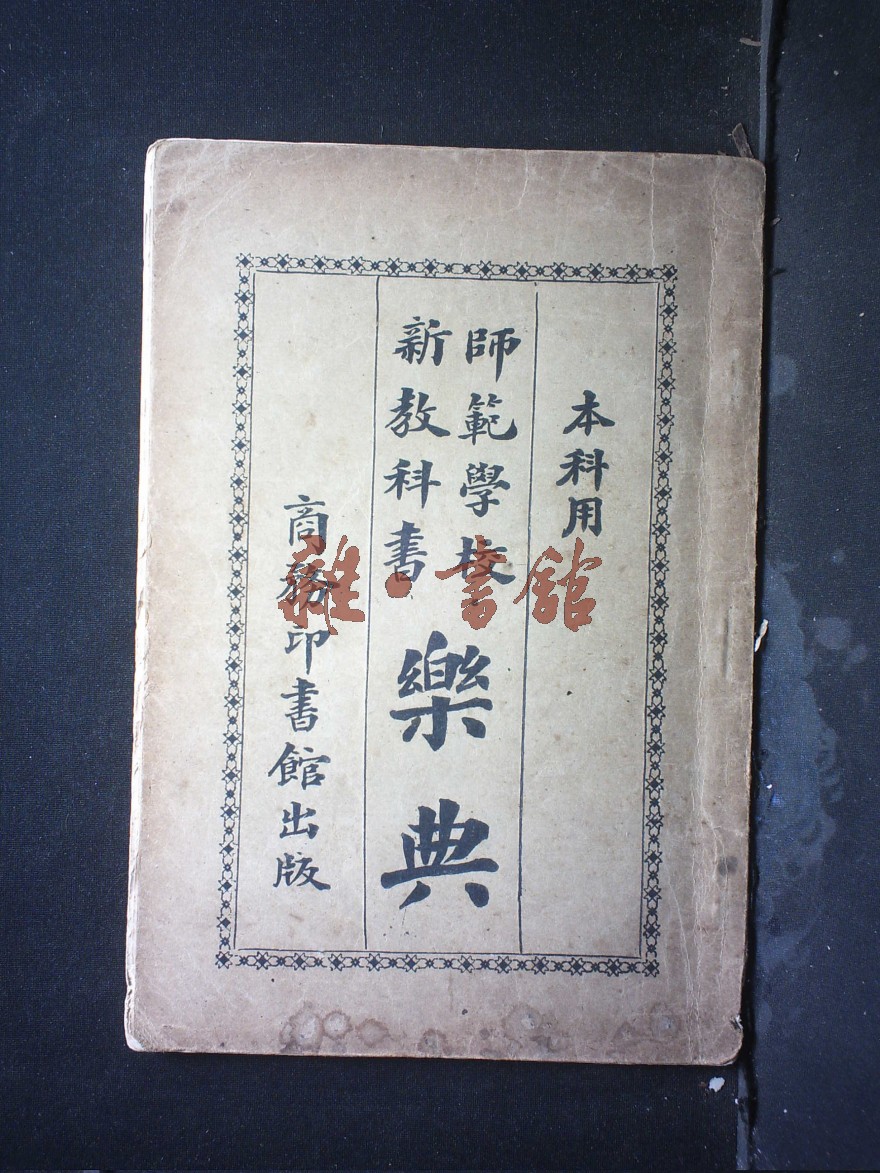 本科用
師範學校
新教科書
樂典
商務印書館出版
雜·書館